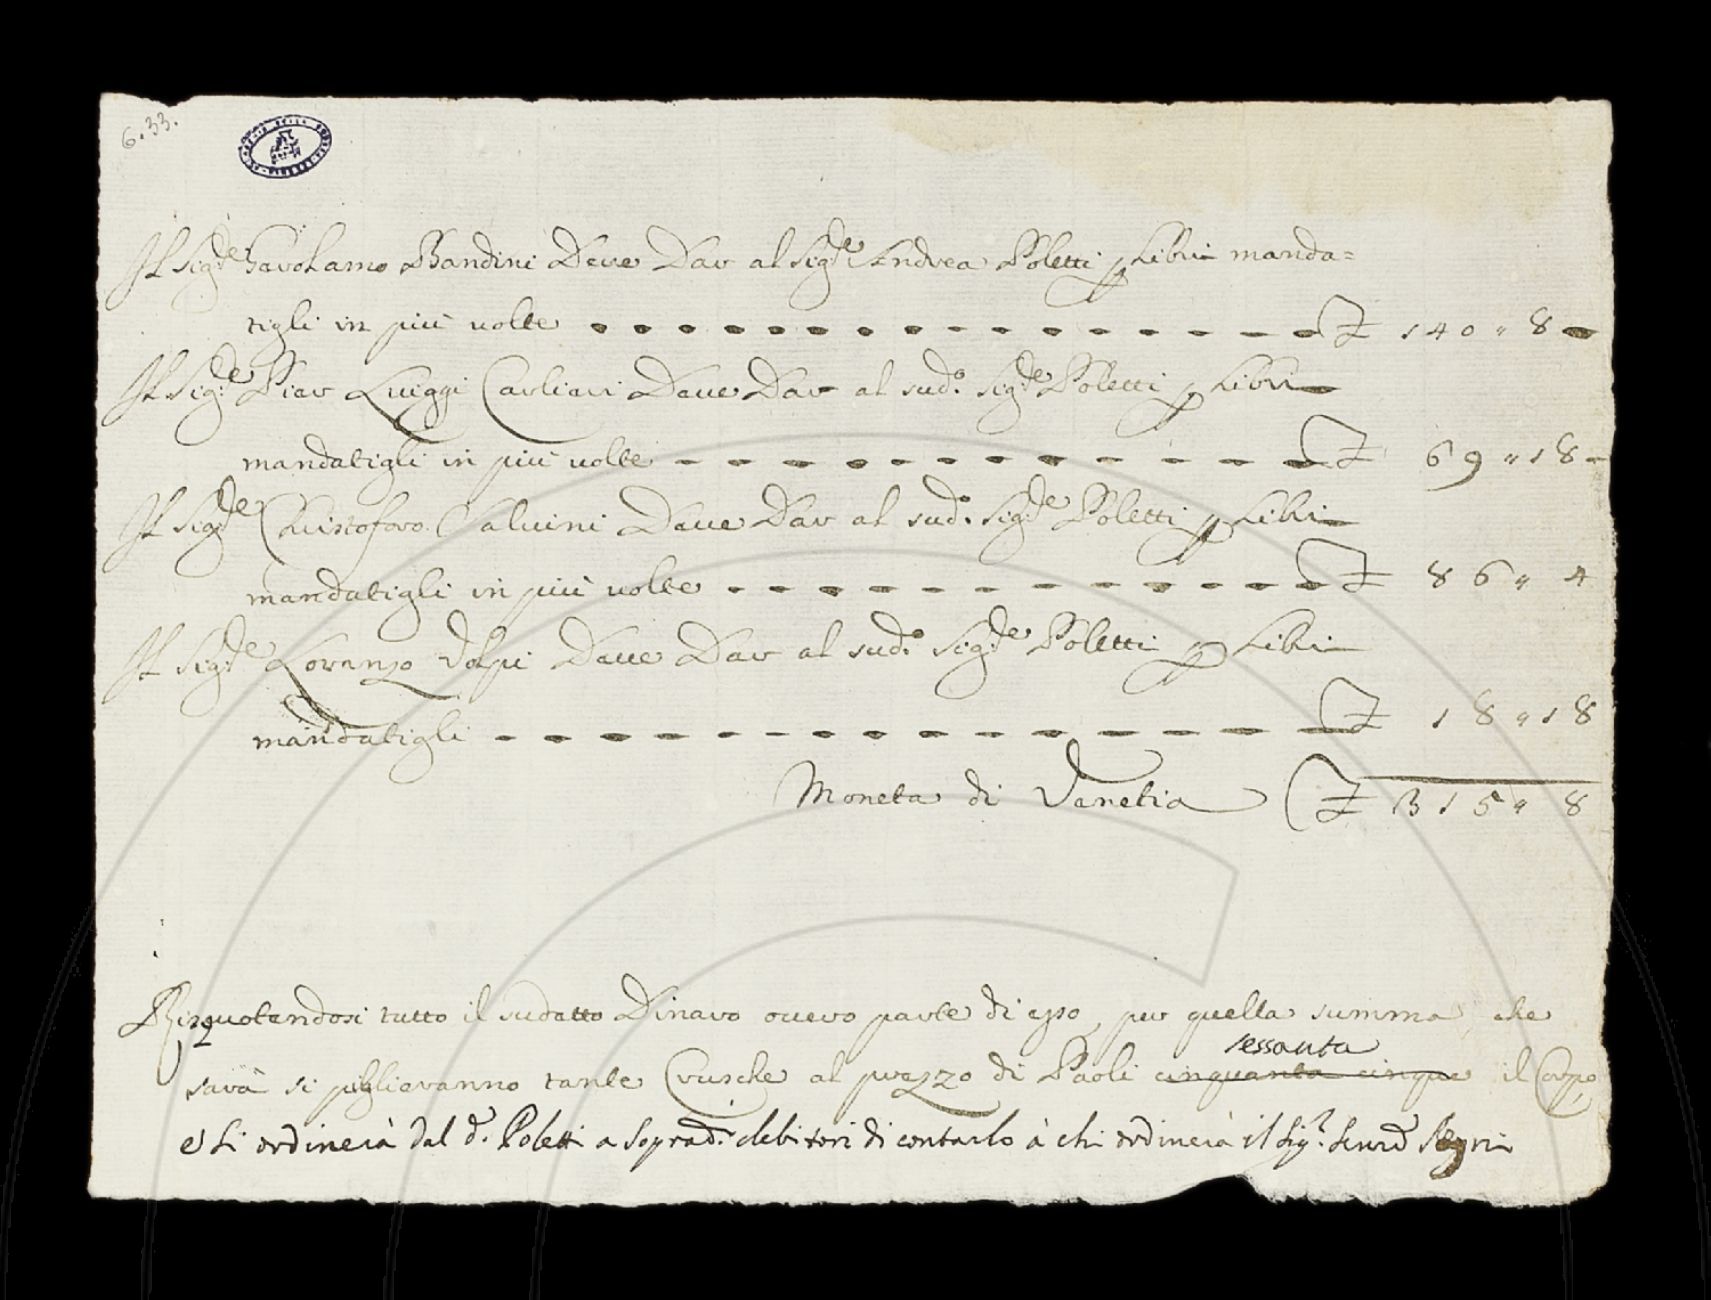 6.33.
ACCADEMIA DELLA CRUSCA · FIRENZE
Il Sig.re Gerolamo Bandini Deve Dar al Sig.re Andrea Poletti p Libri manda=
tigli in più uolte £ 140 " 8
Il Sig.re Pier Luiggi Carlieri Deue Dar al sud.o Sig.re Poletti p Libri
mandatigli in più uolte £ 69 " 18
Il Sig.re Christoforo Caluini Deue Dar al sud.o Sig.re Poletti p Libri
mandatigli in più uolte £ 86 " 4
Il Sig.re Lorenzo Volpi Deue Dar al sud.o Sig.re Poletti p Libri
mandatigli £ 18 " 18
Moneta di Venetia £ 315 " 8
Risquotendosi tutto il sudatto Dinaro ouero parte di esso per quella summa che
sessanta
sarà si piglieranno tante Crusche al prezzo di Paoli cinquanta cinque il Corpo,
e si ordinerà dal d.o Poletti a soprad.i debitori di contarlo à chi ordinerà il Sig.r